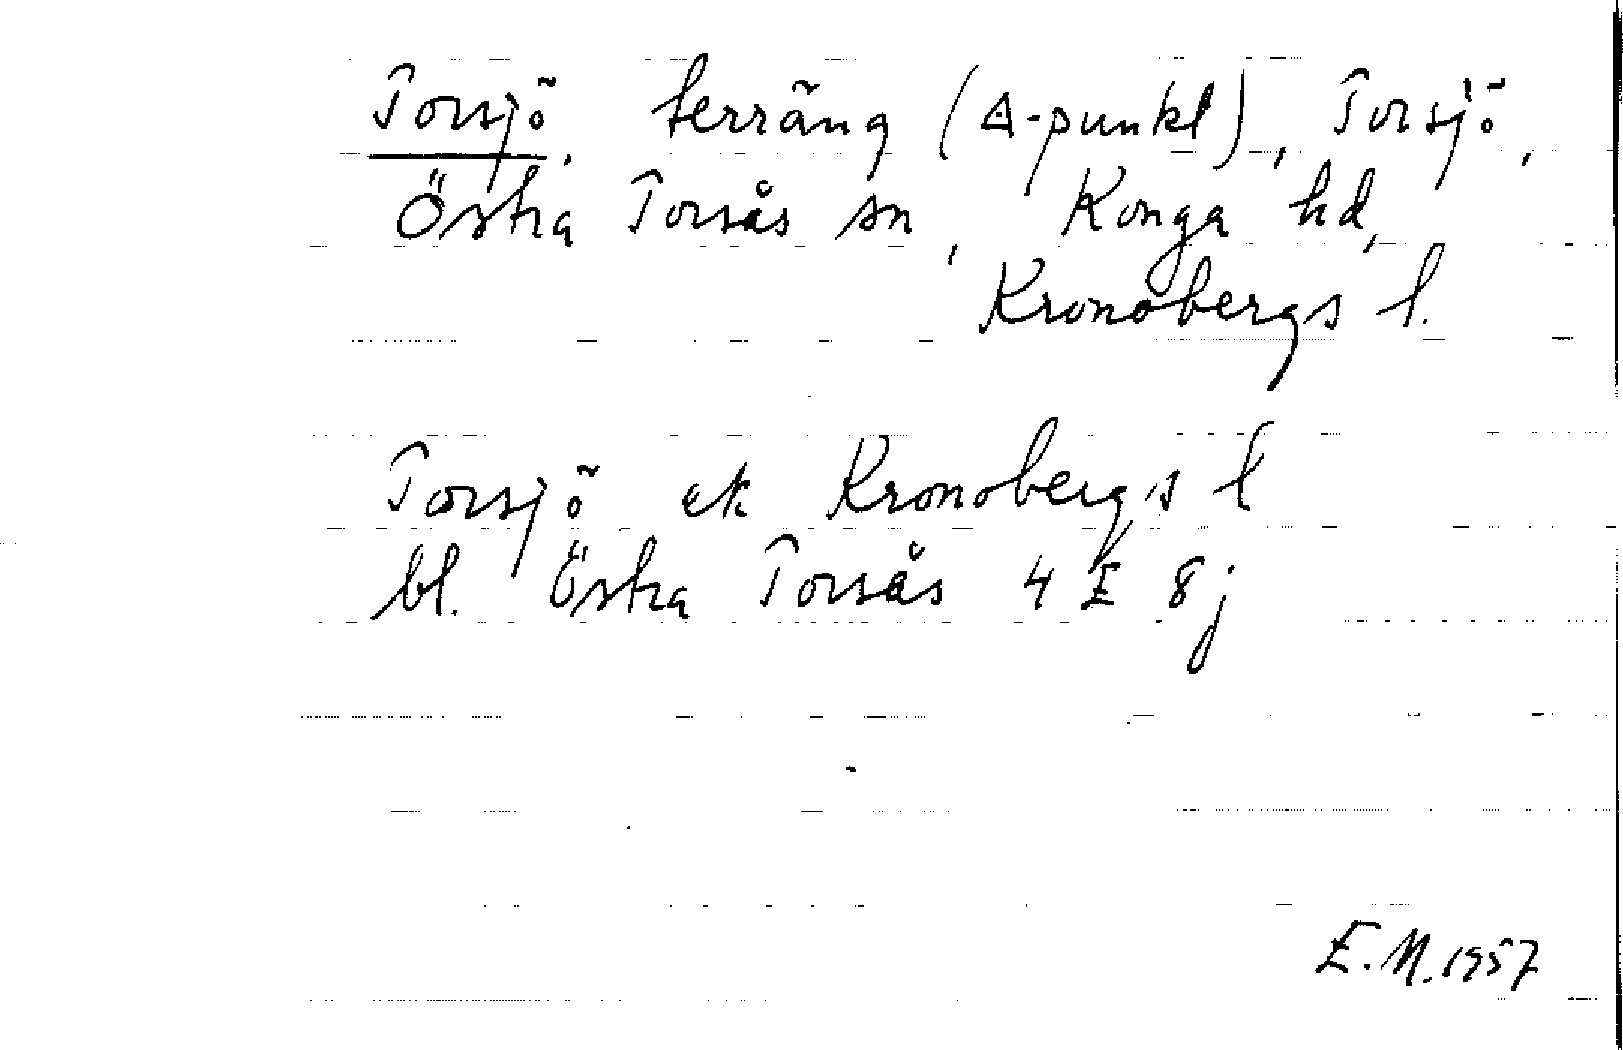 Torsjö, terräng (Δ-punkt), Torsjö,
Östra Torsås sn, Konga hd,
Kronobergs l.
Torsjö ek Kronobergs l
bl. Östra Torsås 4 E 8j
E.M. 1957